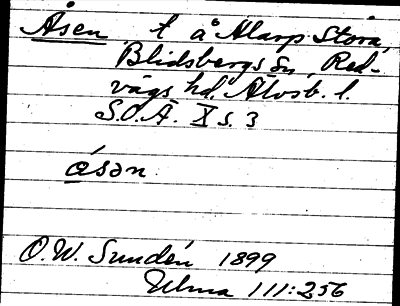 Åsen t å Alarp Stora,
Blidsbergs sn, Red-
vägs hd. Älvsb. l.
S.O.Ä. X s. 3
ósən
O.W. Sundén 1899
Ulma 111:256